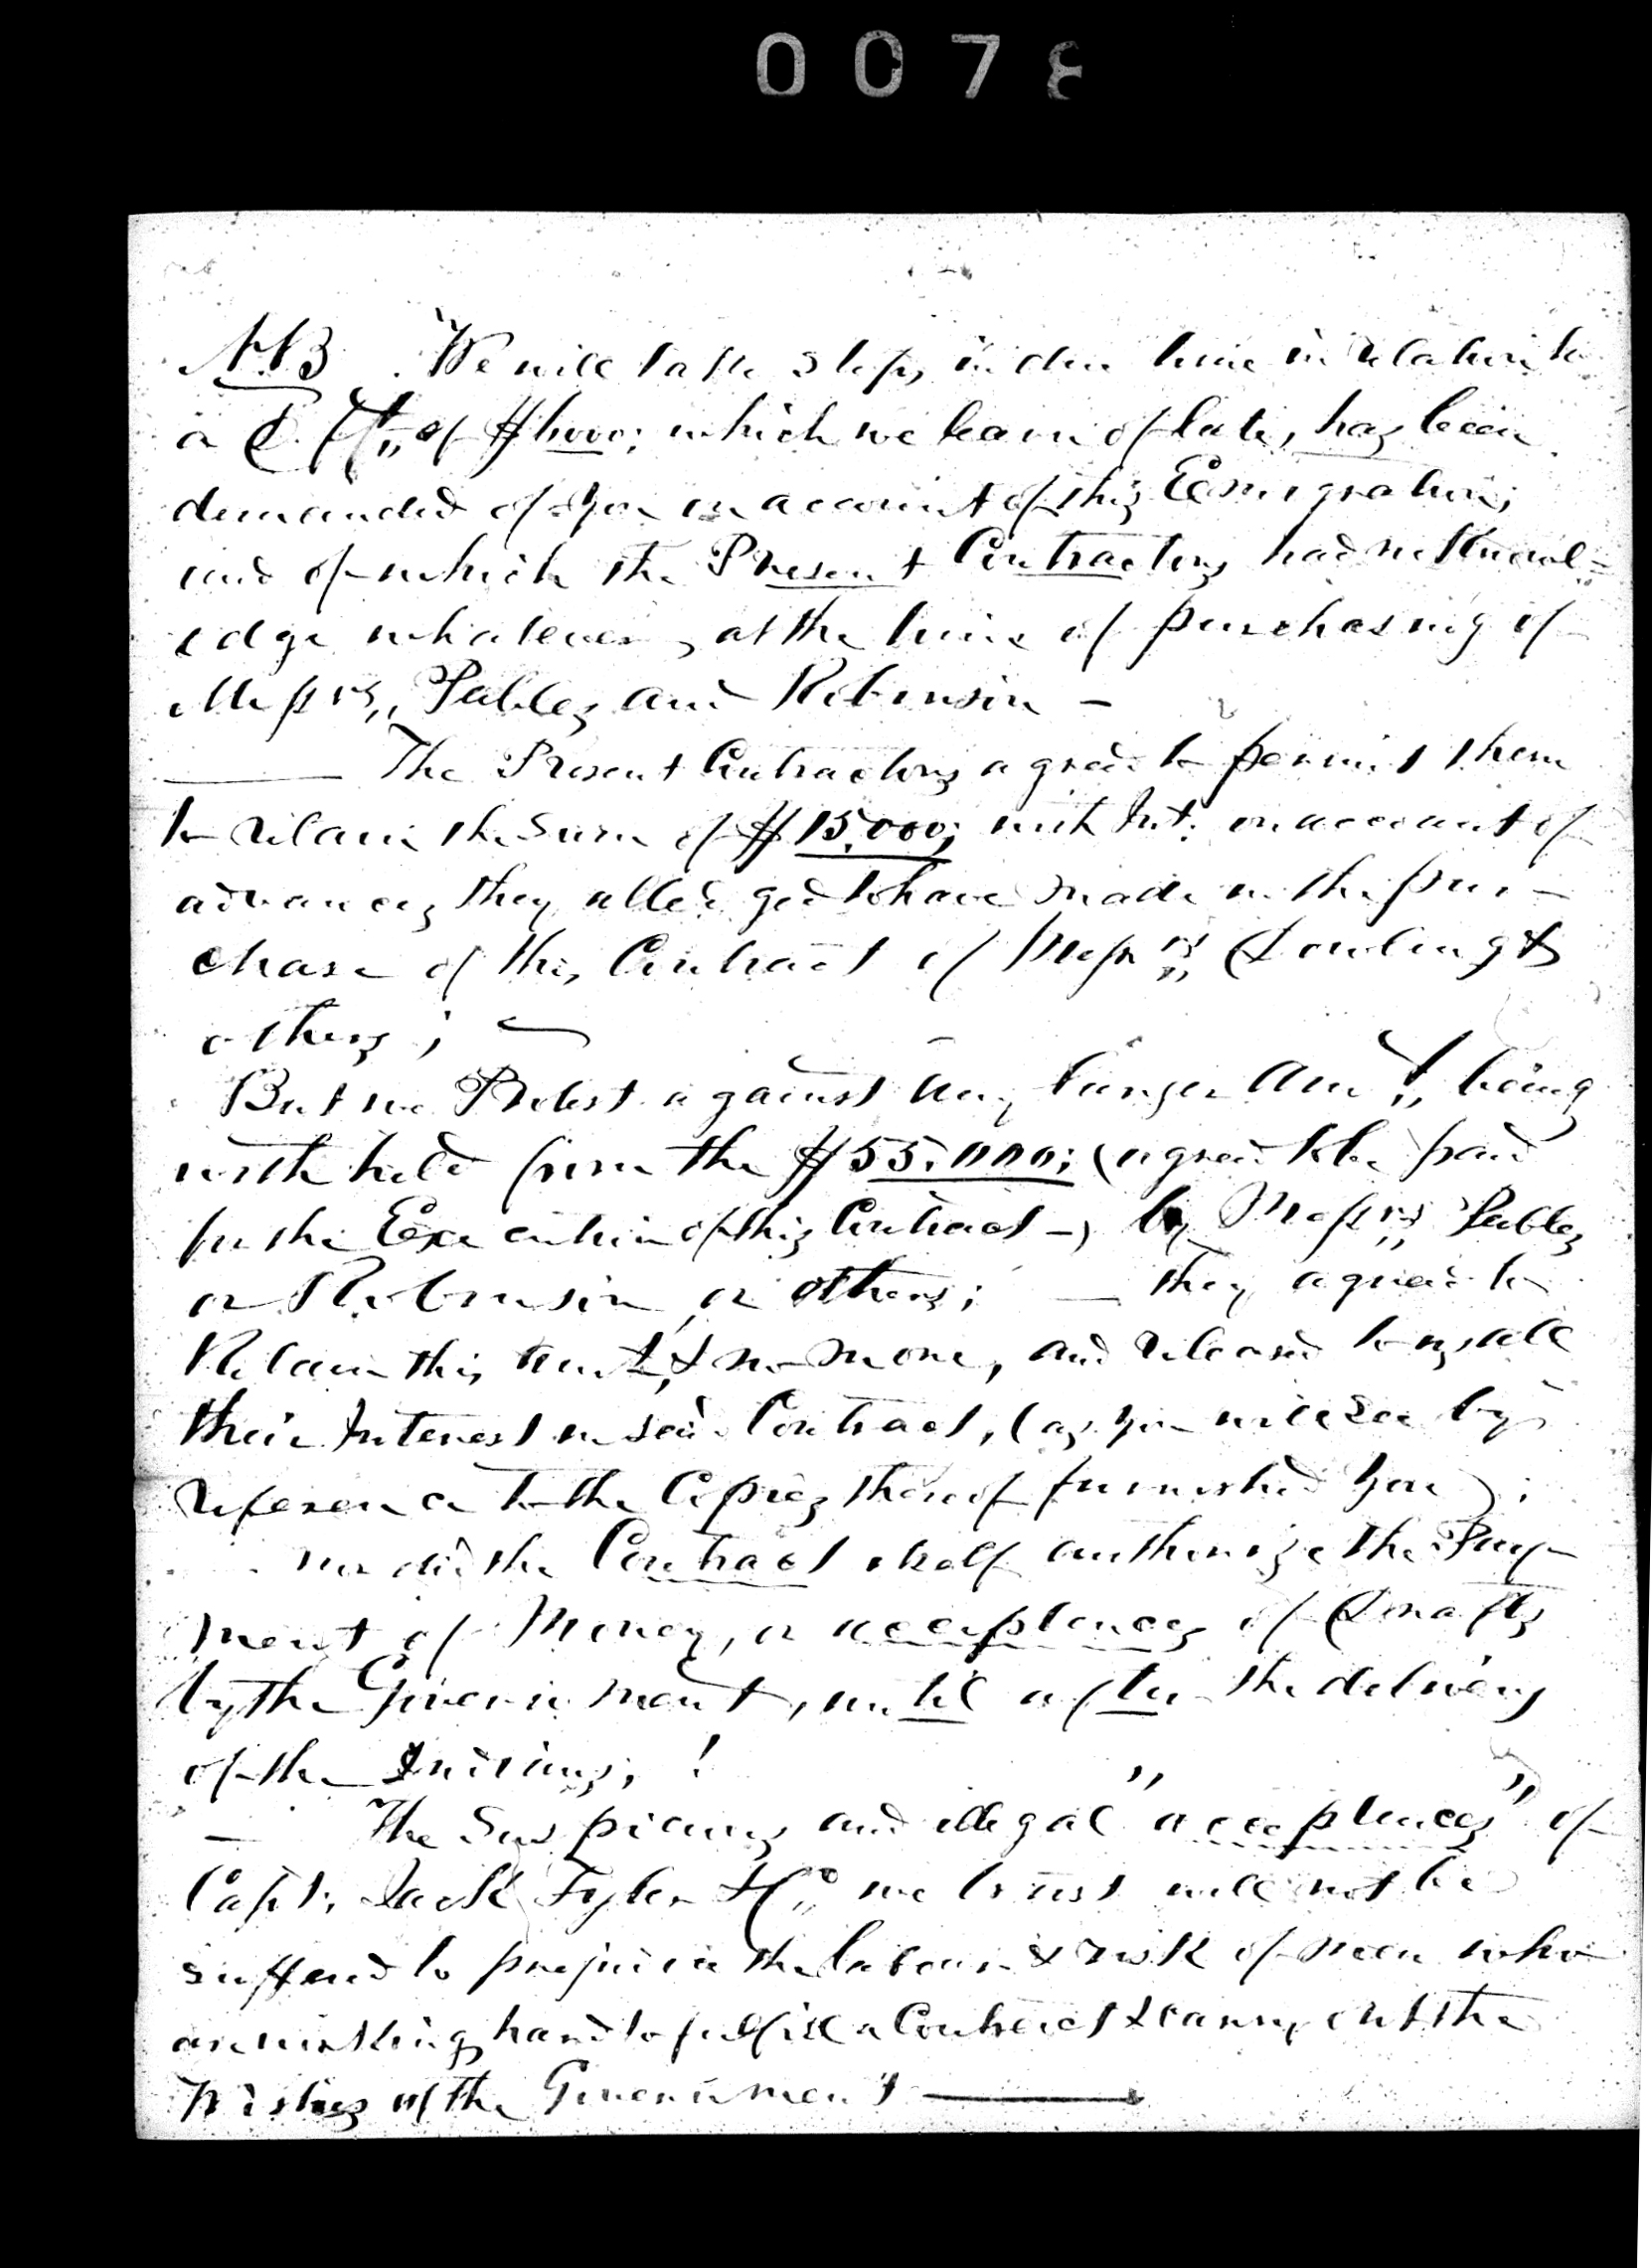 0078
N.B. We will take steps in due time in relation to
a of $ which we learn of late, has been
demanded of you on account of this Emigration;
and of which the Present Contractors had no knowl=
edge whatever, at the time of purchasing of
Messrs,, Peebles and Robinson -
The Present Contractors agreed to permit them
to retain the Sum of $15,000; with Int: on account of
advances they alledged to have made in the pur-
chase of this Contract of Messrs,, Dowling &
others; —
But we Protest against any larger Amt,, being
withheld from the $55.000; (agreed to be paid
for the Execution of this Contract -) by Messrs,, Peebles
or Robinson, or others; — they agreed to
Retain this Amt, & no more, and released to us all
their Interest in said Contract, (as you will see by
reference to the Copies thereof furnished you);
nor did the Contract itself authorize the Pay-
ment of Money, or acceptances of Drafts
by the Government, until after the delivery
of the Indians; !
— The Suspicious and illegal "acceptances" of
Capt: Jack Tyler & Co,, we trust will not be
suffered to prejudice the labour & risk of men who
are working hard to fulfill a Contract & carry out the
Wishes of the Government —